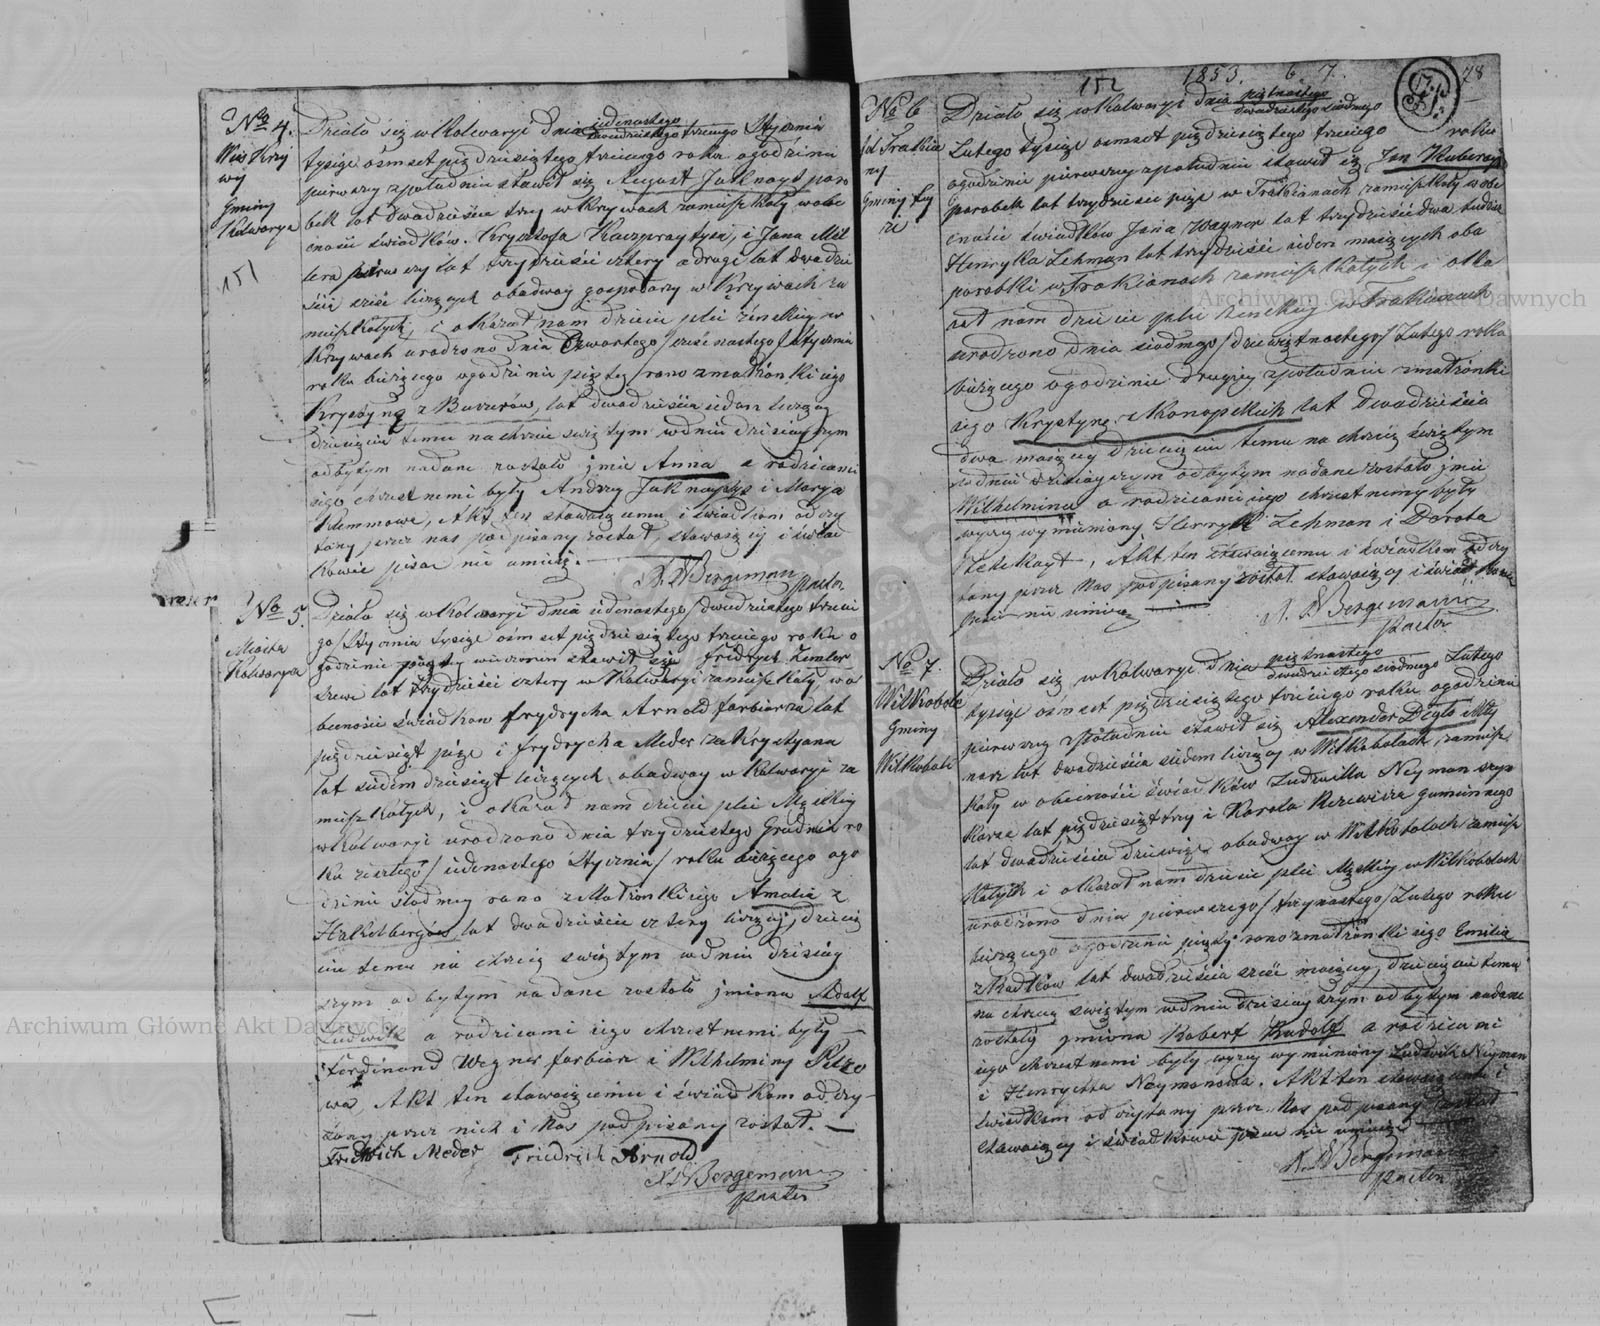 No 4.
Wieś Krzy
wy
Gminy
Kalwarya
151
Działo się w Kalwaryi dnia jedenastego / dwudziestego trzeciego Stycznia
tysiąc ośmset pięćdziesiątego trzeciego roku o godzinie
pierwszy z południa stawił się August Jaknayt paro
bek lat dwadzieścia trzy w Krzywach zamieszkały w obe
cności świadków Krysztofa Kaczpraytysa, i Jana Mil
lera pierwszy lat trzydzieści cztery a drugi lat dwadzie
ścia sześć liczących obadwaj gospodarzy w Krzywach za
mieszkałych, i okazał nam dziecie płci żeńskiey w
Krzywach urodzone dnia Czwartego / szesnastego / Stycznia
roku bieżącego o godzinie piątej rano z małżonki iego
Krystyny z Bawerów, lat dwadzieścia siedem liczący
dziecięciu temu na chrzcie świętym w dniu dzisieyszym
odbytym nadane zostało imie Anna a rodzicami
iego chrzestnemi były Andrzey Jaknaytys i Marya
Klemmowa, Akt ten stawaiącemu i świadkom odczy
tany przez nas podpisany został, stawaiący i świad
kowie pisać nie umieią.
Bergemann
pastor
No 5.
Miasta
Kalwarya
Działo się w Kalwaryi dnia iedenastego / dwudziestego trzecie
go / Stycznia tysiąc ośmset pięćdziesiątego trzeciego roku o
godzinie piątey wieczorem stawił się Fridrych Zemler
szewc lat trzydzieści cztery w Kalwaryi zamieszkały w o
becności świadków Frydrycha Arnold farbiarza lat
pięćdziesiąt pięć i Frydrycha Meder zakrystyana
lat siedemdziesiąt liczących obadway w Kalwaryi za
mieszkałych, i okazał nam dziecie płci Męzkiey
w Kalwaryi urodzone dnia trzydziestego Grudnia ro
ku zeszłego / iedenastego Stycznia / roku bieżącego o go
dzinie siódmey rano z Małżonki iego Amalii z
Hakelbergów lat dwadzieścia cztery liczący, dziecię
ciu temu na chrzcie świętym w dniu dzisiey
szym odbytym nadane zostało imiona Adolf
Ludwik a rodzicami iego chrzestnemi były
Ferdinand Wegner farbiarz i Wilhelminy
wa, Akt ten stawaiącemu i świadkom odczy
tany przez nich i Nas podpisany został.
Friedrich Meder Friedrich Arnold
Bergemann
pastor
152 1853. 6. 7. 78
No 6
Trakia
ny
Gminy
Działo się w Kalwaryi dnia piętnastego / dwudziestego siódmego
Lutego tysiąc ośmset pięćdziesiątego trzeciego roku
o godzinie pierwszey z południa stawił się Jan
parobek lat trzydzieści pięć w Trakianach zamieszkały w obe
cności świadków Jana Wagner lat trzydzieści dwa tudzież
Henryka Lehman lat trzydzieści ieden maiących oba
parobki w Trakianach zamieszkałych i oka
zał nam dziecie płci żeńskiey w Trakianach
urodzone dnia siódmego / dziewiętnastego / Lutego roku
bieżącego o godzinie drugiey z południa z małżonki
iego Krystyny z Konopskich lat dwadzieścia
dwa maiący dziecięciu temu na chrzcie świętym
w dniu dzisieyszym odbytym nadane zostało imie
Wilhelmina a rodzicami iego chrzestnemi były
wyzey wymieniony Henryk Lehman i Dorota
Akt ten stawaiącemu i świadkom odczy
tany przez Nas podpisany został stawaiący i świadkowie
pisać nie umieią
Bergemann
pastor
No 7.
Wilkobole
Gminy
Wilkobole
Działo się w Kalwaryi dnia piętnastego / dwudziestego siódmego Lutego
tysiąc ośmset pięćdziesiątego trzeciego roku o godzinie
pierwszey z południa stawił się Alexander Deglo Mły
narz lat dwadzieścia siedem liczący w Wilkobolach zamiesz
kały w obecności świadków Ludwika Neyman szyn
karza lat pięćdziesiąt trzy i Karola guminnego
lat dwadzieścia dziewięć obadway w Wilkobolach zamiesz
kałych i okazał nam dziecie płci Męzkiey w Wilkobolach
urodzone dnia pierwszego / trzynastego / Lutego roku
bieżącego o godzinie piątey rano z małżonki iego Emilii
z Radtków lat dwadzieścia sześć maiący, dziecięciu temu
na chrzcie świętym w dniu dzisieyszym odbytym nadane
zostały imiona Robert Rudolf a rodzicami
iego chrzestnemi były wyzey wymieniony Ludwik Neyman
i Henryetta Neymanowa. Akt ten stawaiącemu i
świadkom odczytany przez Nas podpisany został
stawaiący i świadkowie pisać nie umieią
Bergemann
pastor
Archiwum Główne Akt Dawnych
Archiwum Główne Akt Dawnych